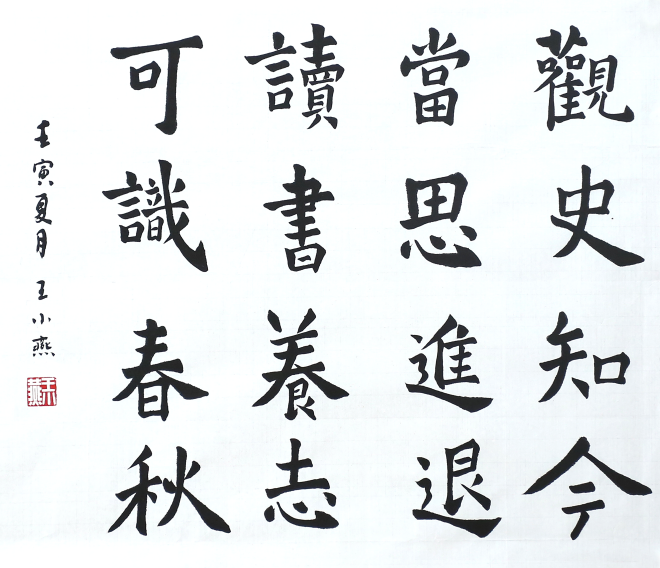 觀史知今
當思進退
讀書養志
可識春秋
壬寅夏月 王小燕